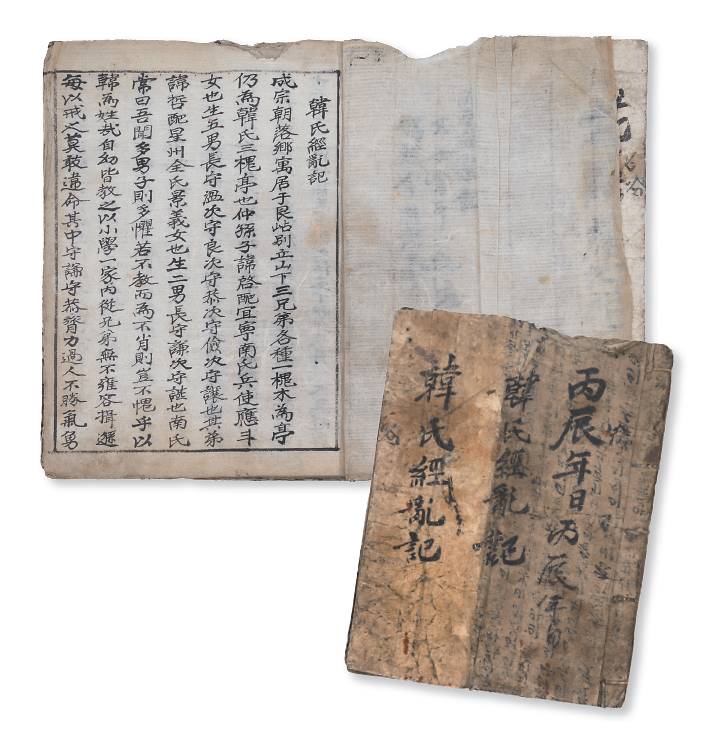 韓氏經亂記
成宗朝落鄕寓居于艮岾別立山下三兄弟各種一槐木為亭
仍為韓氏三槐亭也仲孫子諱啓配宜寧南氏兵使應斗
女也生五男長守溫次守良次守恭次守儉次守讓也其弟
諱哲配星州全氏景義女也生二男長守謙次守誰也南氏
常曰吾聞多男子則多懼若不教而為不肖則豈不愧乎以
韓為姓哉自幼皆教之以小學一家內從兄弟無不雍容揖遜
每以戒之莫敢違命其中守謙守恭膂力過人不勝氣勇
丙辰年日丙辰年
韓氏經亂記
韓氏經亂記